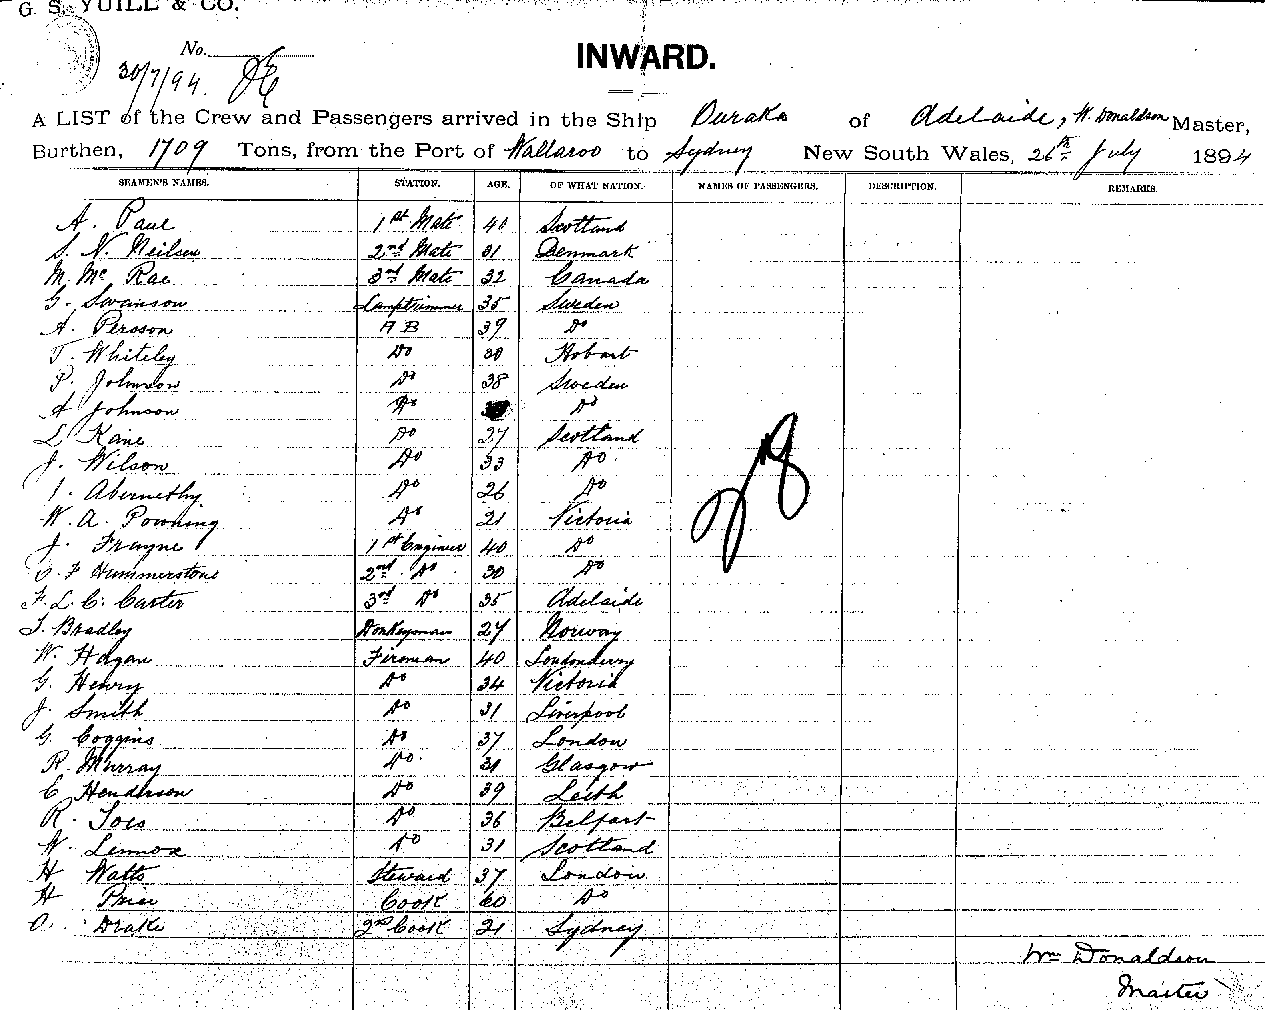 G. S. YUILL & CO.
No.
30/7/94.
INWARD.
A LIST of the Crew and Passengers arrived in the Ship Ouraka of Adelaide, W. Donaldson Master,
Burthen, 1709 Tons, from the Port of Wallaroo to Sydney New South Wales, 26th July 1894
SEAMEN'S NAMES. STATION. AGE. OF WHAT NATION. NAMES OF PASSENGERS. DESCRIPTION. REMARKS.
A. Paul 1st Mate 40 Scotland
S. N. Neilsen 2nd Mate 31 Denmark
M. Mc Rae 3rd Mate 32 Canada
G. Swanson Lamptrimmer 35 Sweden
A. Persson A B 39 Do
T. Whiteley Do 30 Hobart
P. Johnson Do 38 Sweden
A Johnson Do Do
L Kane Do 27 Scotland
J. Wilson Do 33 Do
I. Abernethy Do 26 Do
W. A. Powning Do 21 Victoria
J. Frayne 1st Engineer 40 Do
F Hummerstone 2nd Do 30 Do
F. L. C. Carter 3rd Do 35 Adelaide
T. Bradley Donkeyman 27 Norway
W. Hagan Fireman 40 Londonderry
G. Henry Do 34 Victoria
J. Smith Do 31 Liverpool
G. Coggins Do 37 London
R. Murray Do. 31 Glasgow
C Henderson Do 39 Leith
R. Do 36 Belfast
W. Lennox Do 31 Scotland
H Watts Steward 37 London
H Prior Cook 60 Do
O. Drake 2nd Cook 21 Sydney
Wm Donaldson
Master